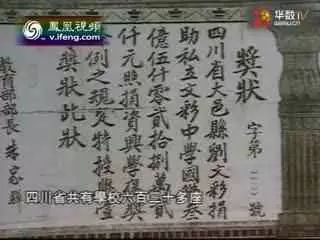 鳳凰視頻
v.ifeng.com
华数TV
獎狀
字第號
四川省大邑縣劉文彩捐
助私立文彩中學國幣叁
億伍仟零貳拾捌萬貳
仟元照捐資興學褒獎
例之規定特授與壹
獎狀此狀
教育部部長 朱家
四川省共有學校六百二十多座